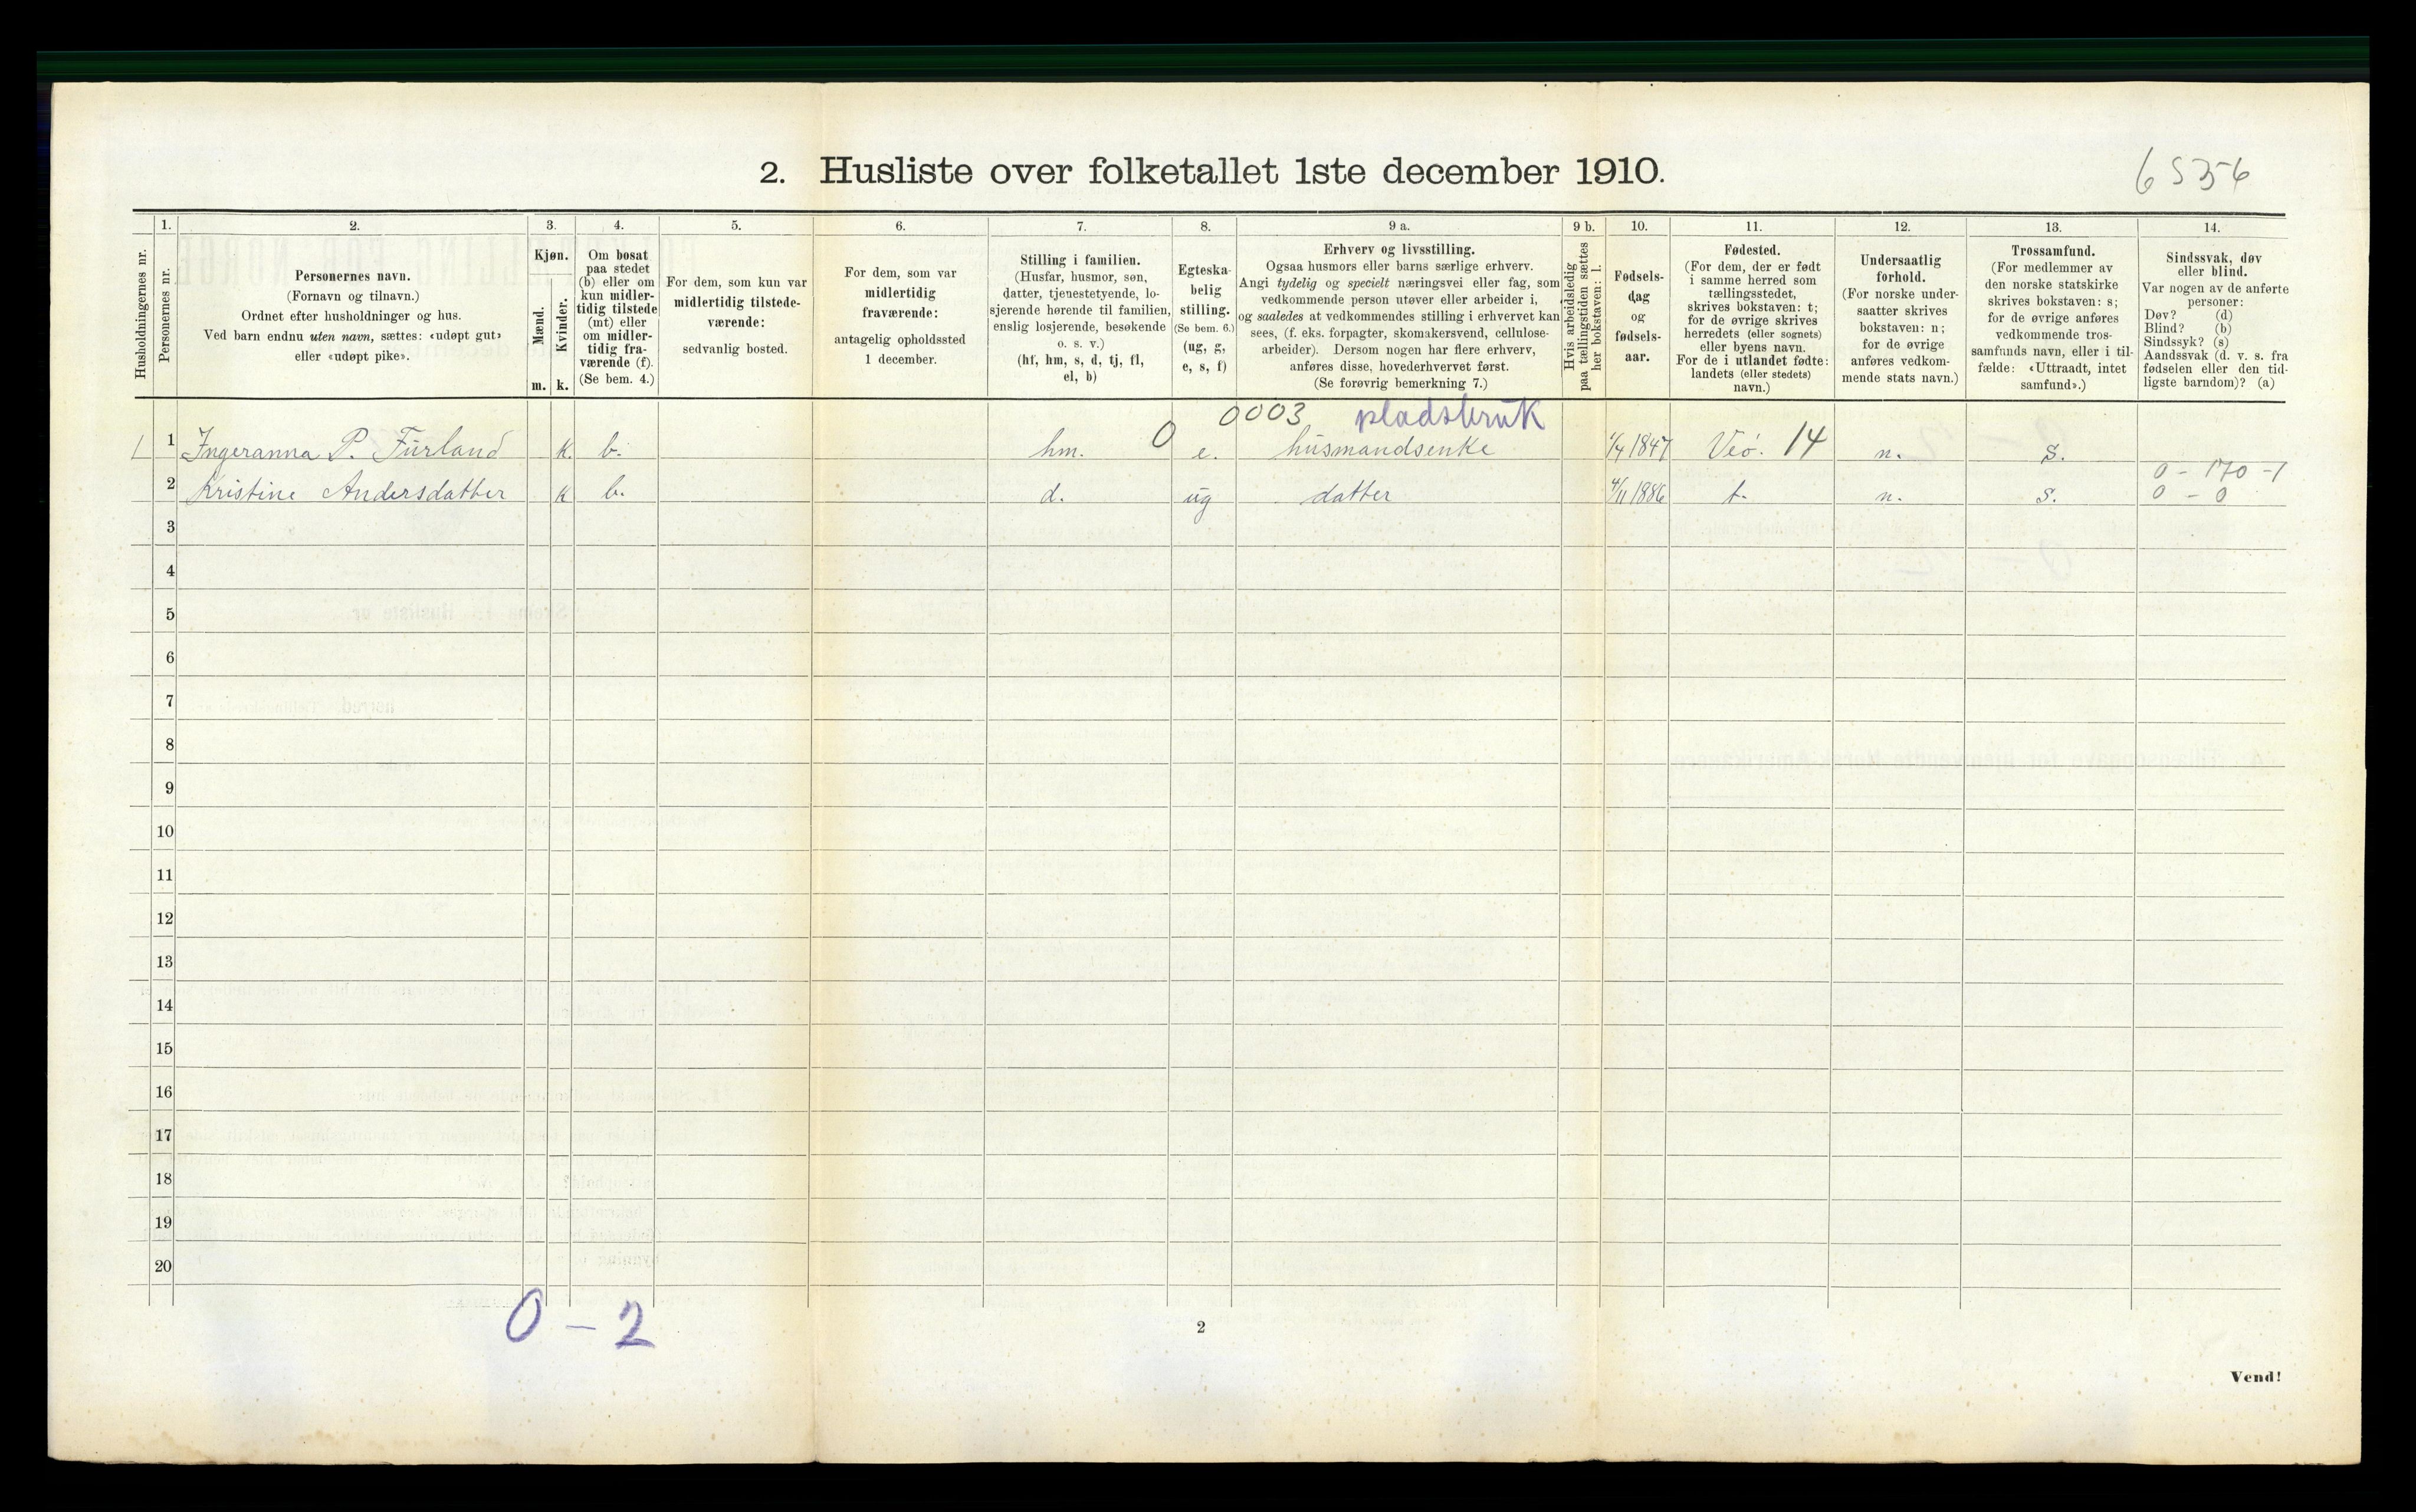 2. Husliste over folketallet 1ste december 1910.
6536
Husholdningernes nr.
1.
Personernes nr.
2.
Personernes navn.
(Fornavn og tilnavn.)
Ordnet efter husholdninger og hus.
Ved barn endnu uten navn, sættes: «udøpt gut»
eller «udøpt pike».
3.
Kjøn.
Mænd.
Kvinder.
m. k.
4.
Om bosat
paa stedet
(b) eller om
kun midler-
tidig tilstede
(mt) eller
om midler-
tidig fra-
værende (f).
(Se bem. 4.)
5.
For dem, som kun var
midlertidig tilstede-
værende:
sedvanlig bosted.
6.
For dem, som var
midlertidig
fraværende:
antagelig opholdssted
1 december.
7.
Stilling i familien.
(Husfar, husmor, søn,
datter, tjenestetyende, lo-
sjerende hørende til familien,
enslig losjerende, besøkende
o. s. v.)
(hf, hm, s, d, tj, fl,
el, b)
8.
Egteska-
belig
stilling.
(Se bem. 6.)
(ug, g,
e, s, f)
9 a.
Erhverv og livsstilling.
Ogsaa husmors eller barns særlige erhverv.
Angi tydelig og specielt næringsvei eller fag, som
vedkommende person utøver eller arbeider i,
og saaledes at vedkommendes stilling i erhvervet kan
sees, (f. eks. forpagter, skomakersvend, cellulose-
arbeider). Dersom nogen har flere erhverv,
anføres disse, hovederhvervet først.
(Se forøvrig bemerkning 7.)
9 b.
Hvis arbeidsledig
paa tællingstiden sættes
her bokstaven: l.
10.
Fødsels-
dag
og
fødsels-
aar.
11.
Fødested.
(For dem, der er født
i samme herred som
tællingsstedet,
skrives bokstaven: t;
for de øvrige skrives
herredets (eller sognets)
eller byens navn.
For de i utlandet fødte:
landets (eller stedets)
navn.)
12.
Undersaatlig
forhold.
(For norske under-
saatter skrives
bokstaven: n;
for de øvrige
anføres vedkom-
mende stats navn.)
13.
Trossamfund.
(For medlemmer av
den norske statskirke
skrives bokstaven: s;
for de øvrige anføres
vedkommende tros-
samfunds navn, eller i til-
fælde: «Uttraadt, intet
samfund».)
14.
Sindssvak, døv
eller blind.
Var nogen av de anførte
personer:
Døv? (d)
Blind? (b)
Sindssyk? (s)
Aandssvak (d. v. s. fra
fødselen eller den tid-
ligste barndom)? (a)
0003 pladsbruk
1 1 Ingeranna P. Furland k. b. hm. 0 e. husmandsenke 1/4 1847 Veø. 14 n. s.
0 - 170 -1
2 Kristine Andersdatter k b. d. ug datter 4/11 1886 t. n. s. 0 - 0
3
4
5
6
7
8
9
10
11
12
13
14
15
16
17
18
19
20
0 - 2
2
Vend!